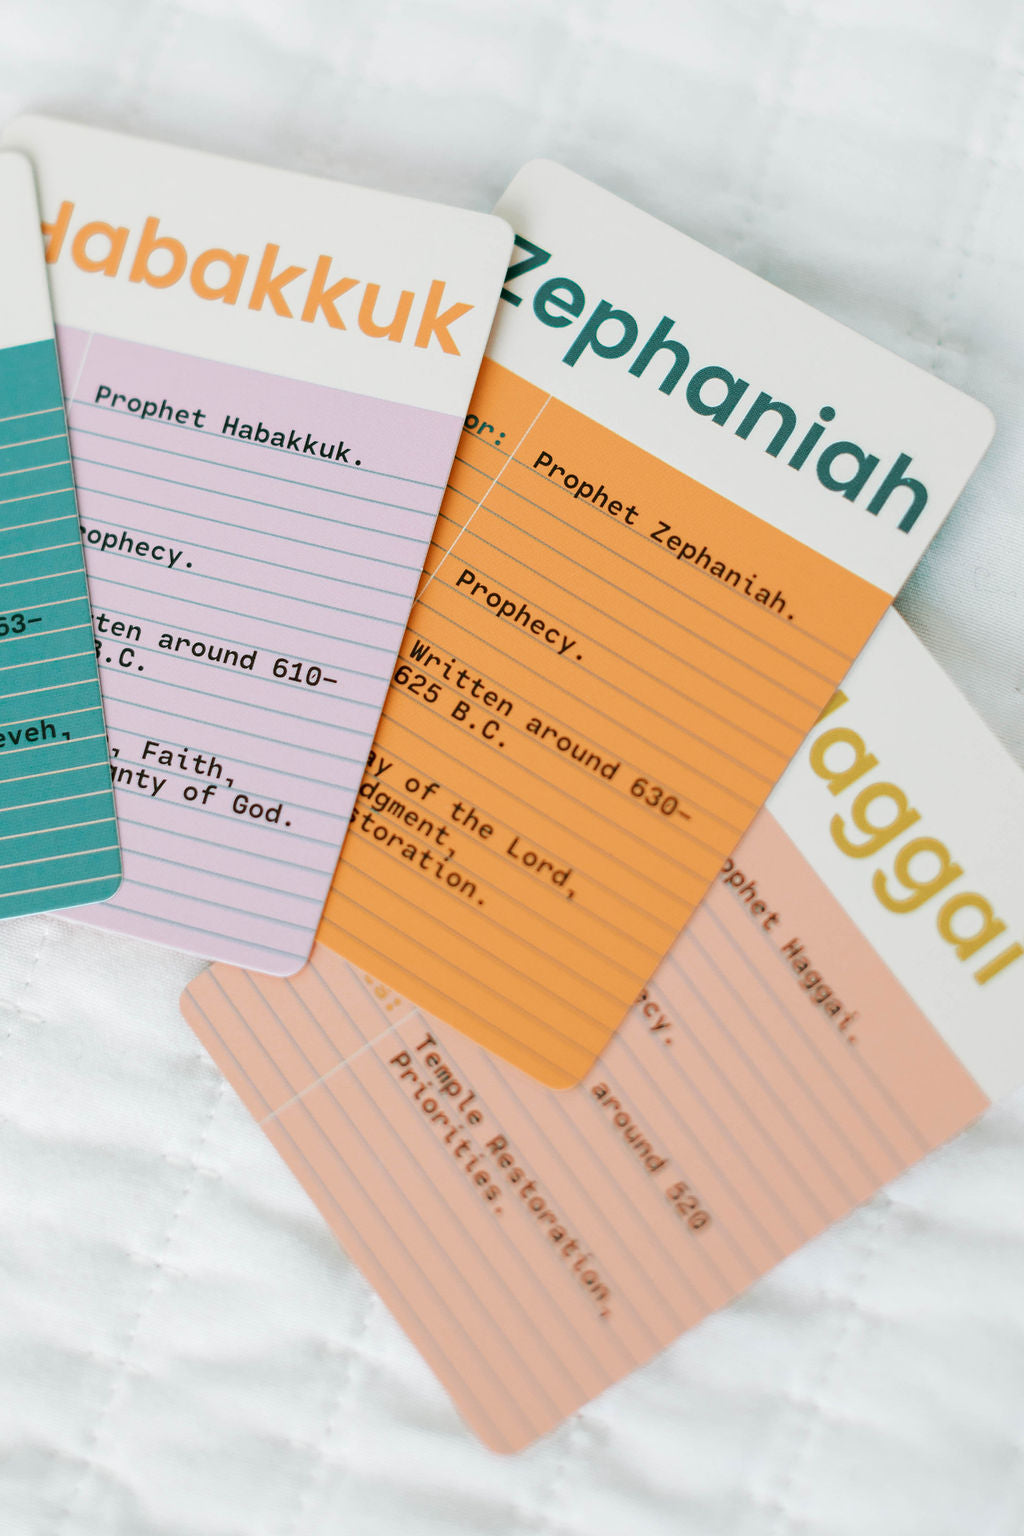 63–
eveh,
Habakkuk
Prophet Habakkuk.
rophecy.
ten around 610–
B.C.
, Faith,
gnty of God.
Zephaniah
or:
Prophet Zephaniah.
Prophecy.
Written around 630–
625 B.C.
ay of the Lord,
dgment,
storation.
Haggai
ophet Haggai.
ecy.
around 520
Temple Restoration,
Priorities.